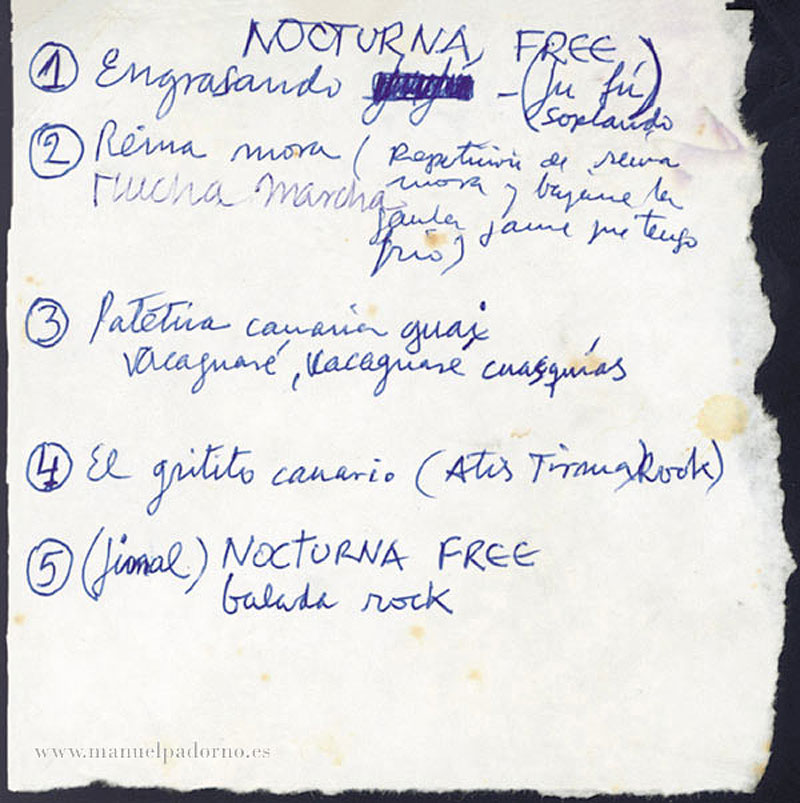 NOCTURNA, FREE
① Engrasando - (fu fú)
(soplando
② Reina mora ( Repetición de reina
mucha marcha mora y bájame la
jaula Jaime que tengo
frío)
③ Patética canaria guai
Vacaguaré, Vacaguaré cuasquías
④ El gritito canario (Atis Tirma) Rock)
⑤ (final) NOCTURNA FREE
balada rock
www.manuelpadorno.es